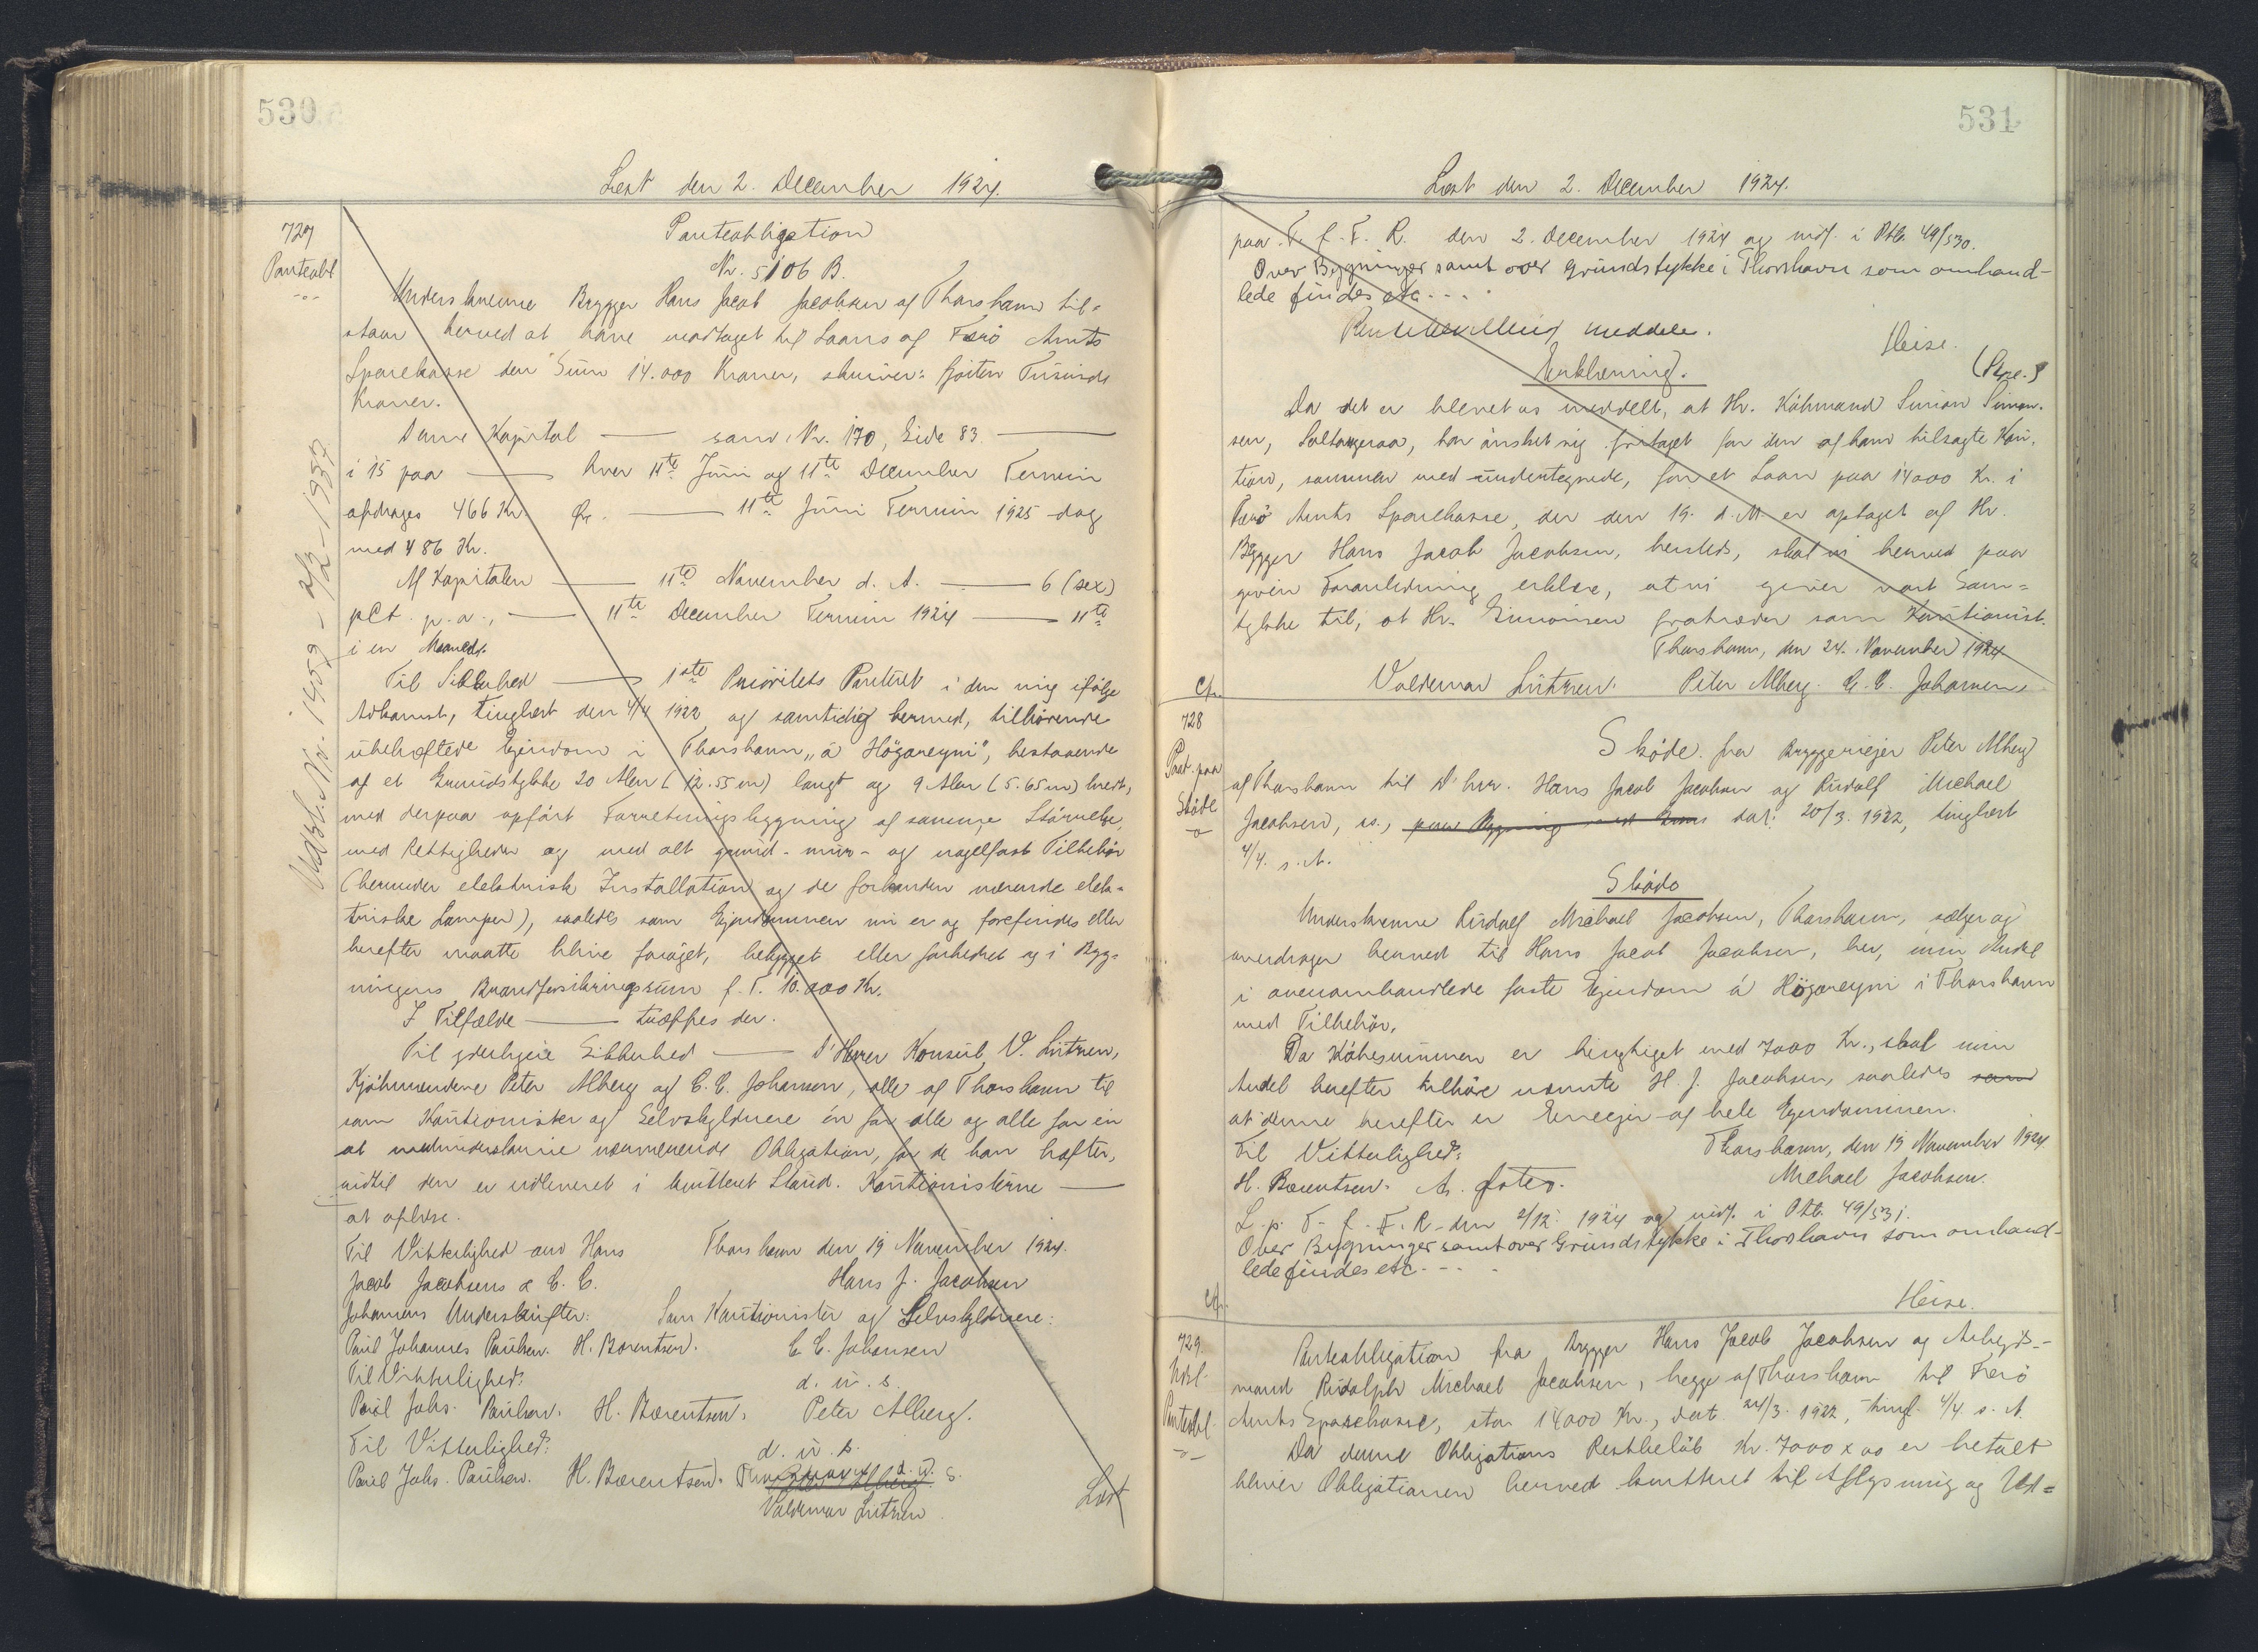 530
Læst den 2. December 1924.
727
Panteobl
Panteobligation
Nr. 5106 B.
Underskrevne Brygger Hans Jacob Jacobsen af Thorshavn til-
staar herved at have modtaget til Laans af Færø Amts
Sparekasse den Sum 14.000 Kroner, skriver: fjorten Tusinde
Kroner.
Denne Kapital — som Nr. 170, Side 83. —
i 15 paa — hver 11te Juni og 11te December Termin
afdrages 466 Kr. Ør. — 11te Juni Termin 1925 dog
med 486 Kr.
Af Kapitalen — 11te November d. A. — 6 (sex)
pCt. p. a., — 11te December Termin 1924 — 11te
i en Maaned.
Til Sikkerhed — 1ste Prioritets Panteret i den mig ifølge
Adkomst, tinglæst den 4/4 1922 og samtidig hermed, tilhørende
übehæftede Ejendom i Thorshavn „á Högareyni", bestaaende
af et Grundstykke 20 Alen (12.55 m) langt og 9 Alen (5.65 m) bredt,
med derpaa opført Forretningsbygning af samme Størrelse,
med Rettigheder og med alt grund- mur- og nagelfast Tilbehør
(herunder elektrisk Installation og de forhanden værende elek-
triske Lamper), saaledes som Ejendommen nu er og forefindes eller
herefter maatte blive forøget, bebygget eller forbedret og i Byg-
ningens Brandforsikringssum f. T. 10.000 Kr.
I Tilfælde — træffes der.
Til yderligere Sikkerhed — D'Herrer Konsul V. Lützen,
Kjøbmændene Peter Alberg og C. C. Johansen, alle af Thorshavn til
som Kautionister og Selvskyldnere én for alle og alle for én
at medunderskrive nærværende Obligation, for de han hæfter,
indtil den er udleveret i kvitteret Stand. Kautionisterne —
at opløse.
Til Vitterlighed om Hans Thorshavn den 19 November 1924.
Jacob Jacobsens & C. C. Hans J. Jacobsen
Johansens Underskrifter: Som Kautionister og Selvskyldnere:
Paul Johannes Poulsen. H. Børentsen. C. C. Johansen
Til Vitterlighed: d. u. s.
Poul Johs. Poulsen. H. Bærentsen. Peter Alberg.
Til Vitterlighed: d. u. s.
Poul Johs. Poulsen. H. Bærentsen. d. u. s.
Valdemar Lützen Læst
Udsl. Nr. 1459 - 2/2 - 1937
531
Læst den 2. December 1924.
paa T. f. F. R. den 2. December 1924 og indf. i Ptb. 49/530.
Over Bygninger samt over Grundstykke i Thorshavn som omhand-
lede findes etc. - - -
meddele.
Heise.
Erklæring.
Da det er blevet os meddelt, at Hr. Købmand Simon Simon-
sen, Saltangeraa, har ønsket sig fritaget for den af ham tilsagte Kau-
tion, sammen med undertegnede, for et Laan paa 14000 Kr. i
Færø Amts Sparekasse, der den 19. d. M. er optaget af Hr.
Brygger Hans Jacob Jacobsen, hersteds, skal vi herved paa
given Foranledning erklære, at vi giver vort Sam-
tykke til, at Hr. Simonsen fratræder som Kautionist.
Thorshavn, den 24. November 1924
Valdemar Lützen. Peter Alberg. C. C. Johansen.
728
Paat. paa
Skøde
Skøde fra Bryggeriejer Peter Alberg
af Thorshavn til D'hrr. Hans Jacob Jacobsen og Rudolf Michael
Jacobsen, is., dat. 20/3. 1922, tinglæst
4/4. s. A.
Skøde
Underskrevne Rudolf Michael Jacobsen, Thorshavn, sælger og
overdrager herved til Hans Jacob Jacobsen, her, min Andel
i ovenomhandlede faste Ejendom á Högareyni i Thorshavn
med Tilbehør.
Da Købesummen er berigtiget med 7000 Kr., skal min
Andel herefter tilhøre nævnte H. J. Jacobsen, saaledes som
at denne herefter er Eneejer af hele Ejendommen.
Til Vitterlighed: Thorshavn, den 19 November 1924
H. Bærentsen. Michael Jacobsen.
L. p. T. f. F. R. den 2/12. 1924 og indf. i Ptb. 49/531.
Over Bygninger samt over Grundstykke i Thorshavn som omhand-
lede findes etc. - - -
Heise.
729.
Udsl.
Panteobl.
Panteobligation fra Brygger Hans Jacob Jacobsen og Arbejds-
mand Rudolph Michael Jacobsen, begge af Thorshavn til Færø
Amts Sparekasse, stor 14000 Kr., dat. 24/3. 1922, tingl. 4/4. s. A.
Da denne Obligations Restbeløb Kr. 7000 x 00 er betalt
bliver Obligationen herved kvitteret til Aflysning og Ud-